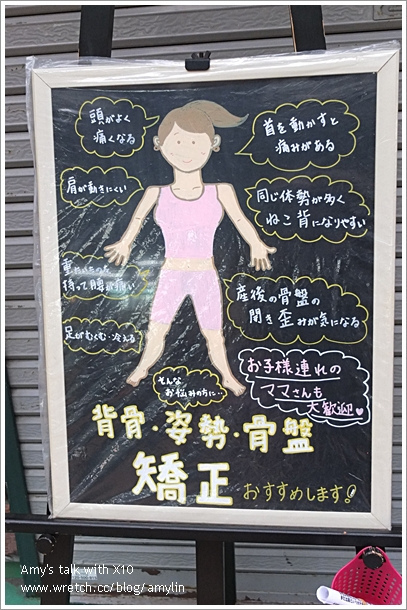 頭がよく
痛くなる
首を動かすと
痛みがある
肩が動きにくい
同じ体勢が多く
ねこ背になりやすい
重たいものを
持って腰が痛い
産後の骨盤の
開き歪みが気になる
足がむくむ・冷える
お子様連れの
ママさんも
大歓迎
そんな
お悩みの方に…
背骨・姿勢・骨盤
矯正
おすすめします!
Amy's talk with X10
www.wretch.cc/blog/amylin